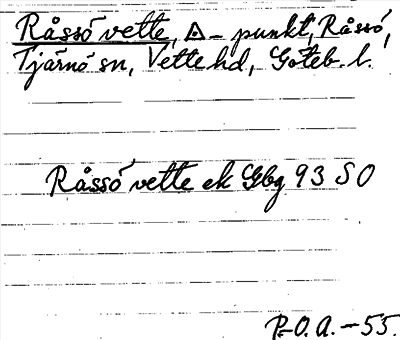 Råssö vette, △ - punkt, Råssö,
Tjärnö sn, Vette hd, Göteb. l.
Råssö vette ek Gbg 93 SO
P.O.A. - 55.